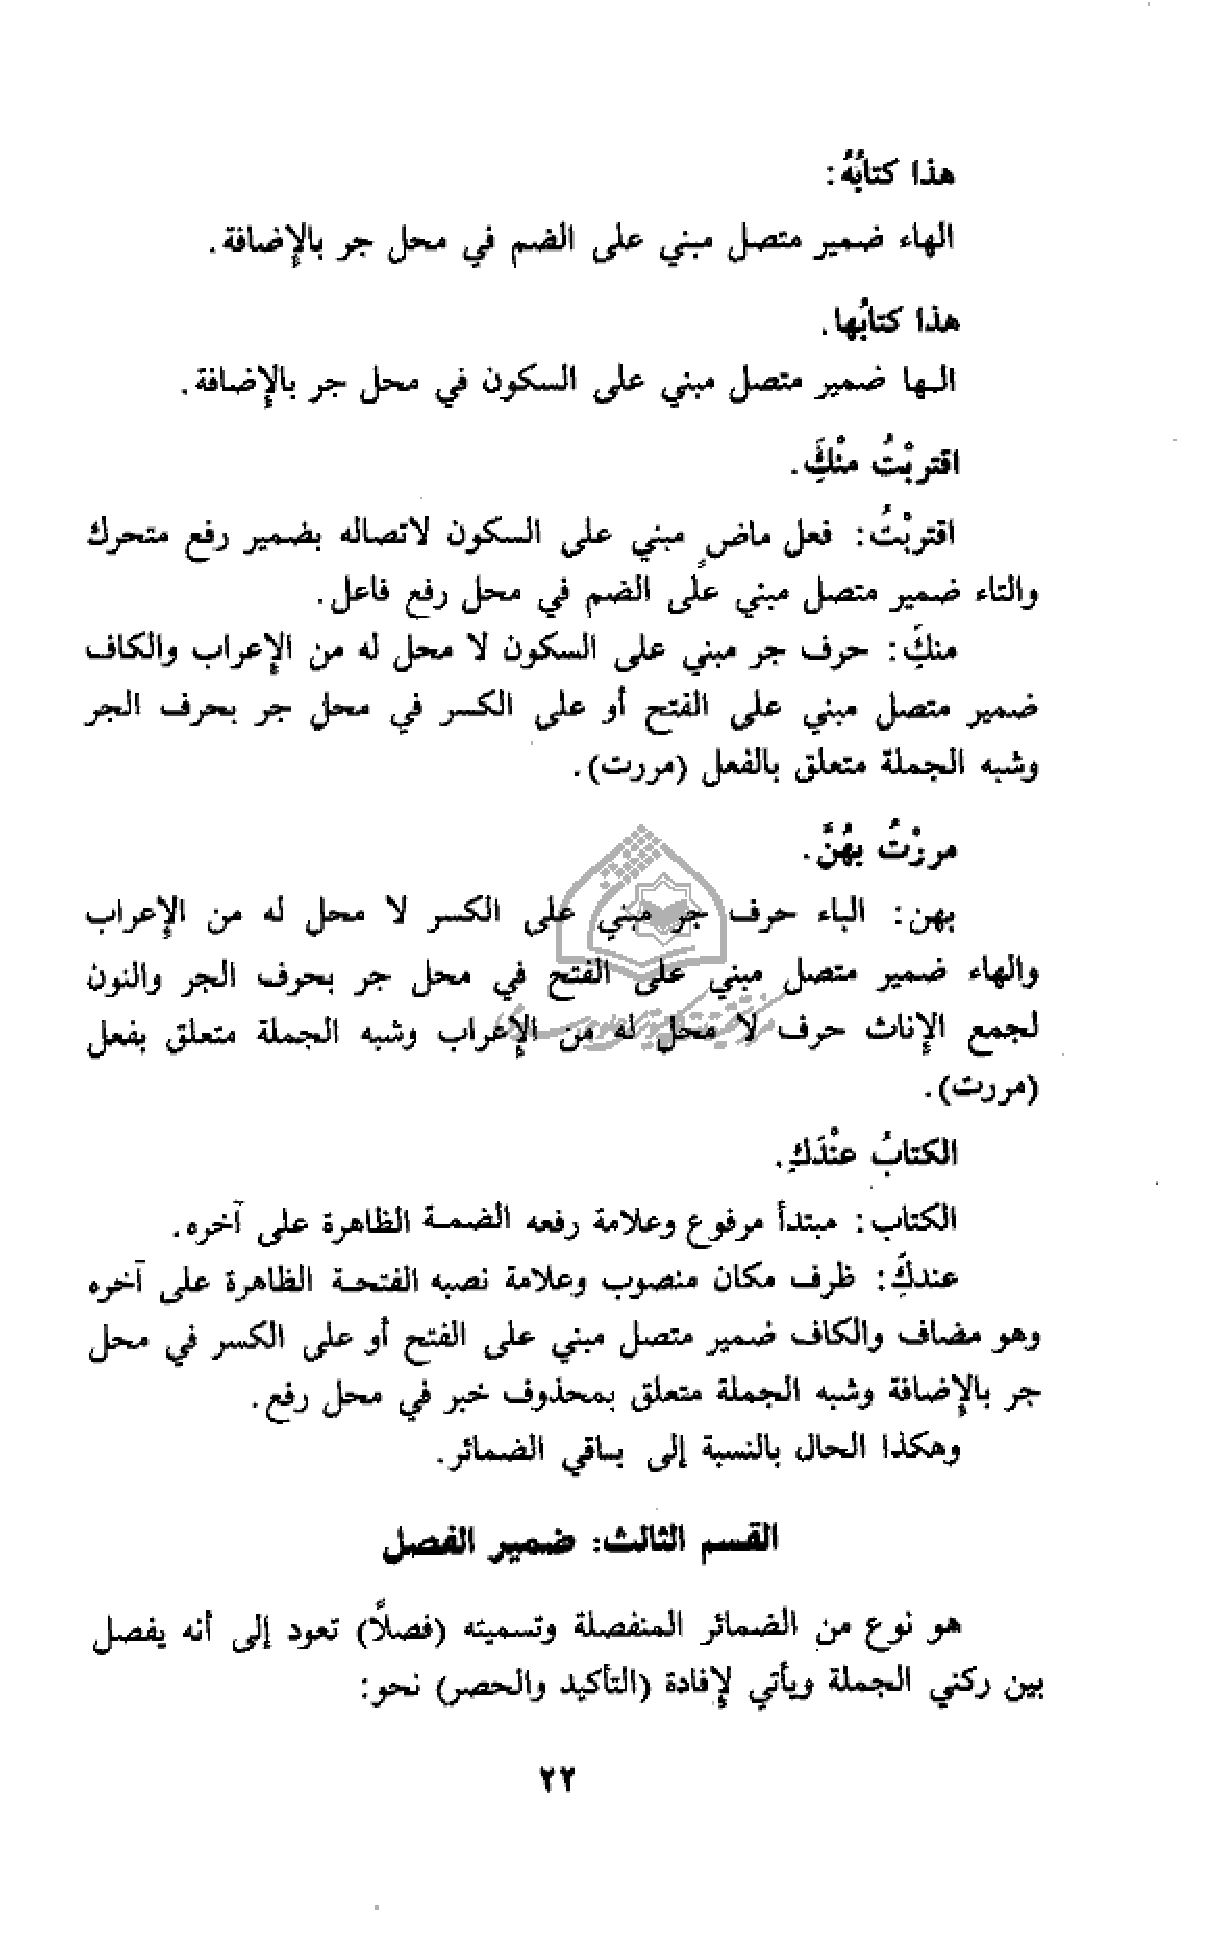 هذا كتابُهُ:
الهاء ضمير متصل مبني على الضم في محل جر بالإضافة.
هذا كتابُها.
الـها ضمير متصل مبني على السكون في محل جر بالإضافة.
اقتربْتُ منْكَِ.
اقتربْتُ: فعل ماضٍ مبني على السكون لاتصاله بضمير رفع متحرك
والتاء ضمير متصل مبني على الضم في محل رفع فاعل.
منكَِ: حرف جر مبني على السكون لا محل له من الإعراب والكاف
ضمير متصل مبني على الفتح أو على الكسر في محل جر بحرف الجر
وشبه الجملة متعلق بالفعل (مررت).
مررْتُ بهُنَّ.
بهن: الباء حرف جر مبني على الكسر لا محل له من الإعراب
والهاء ضمير متصل مبني على الفتح في محل جر بحرف الجر والنون
لجمع الإناث حرف لا محل له من الإعراب وشبه الجملة متعلق بفعل
(مررت).
الكتابُ عنْدَكِ.
الكتاب: مبتدأ مرفوع وعلامة رفعه الضمـة الظاهرة على آخره.
عندكَِ: ظرف مكان منصوب وعلامة نصبه الفتحـة الظاهرة على آخره
وهو مضاف والكاف ضمير متصل مبني على الفتح أو على الكسر في محل
جر بالإضافة وشبه الجملة متعلق بمحذوف خبر في محل رفع.
وهكذا الحال بالنسبة إلى بـاقي الضمائر.
القسم الثالث: ضمير الفصل
هو نوع من الضمائر المنفصلة وتسميته (فصلًا) تعود إلى أنه يفصل
بين ركني الجملة ويأتي لإفادة (التأكيد والحصر) نحو:
٢٢